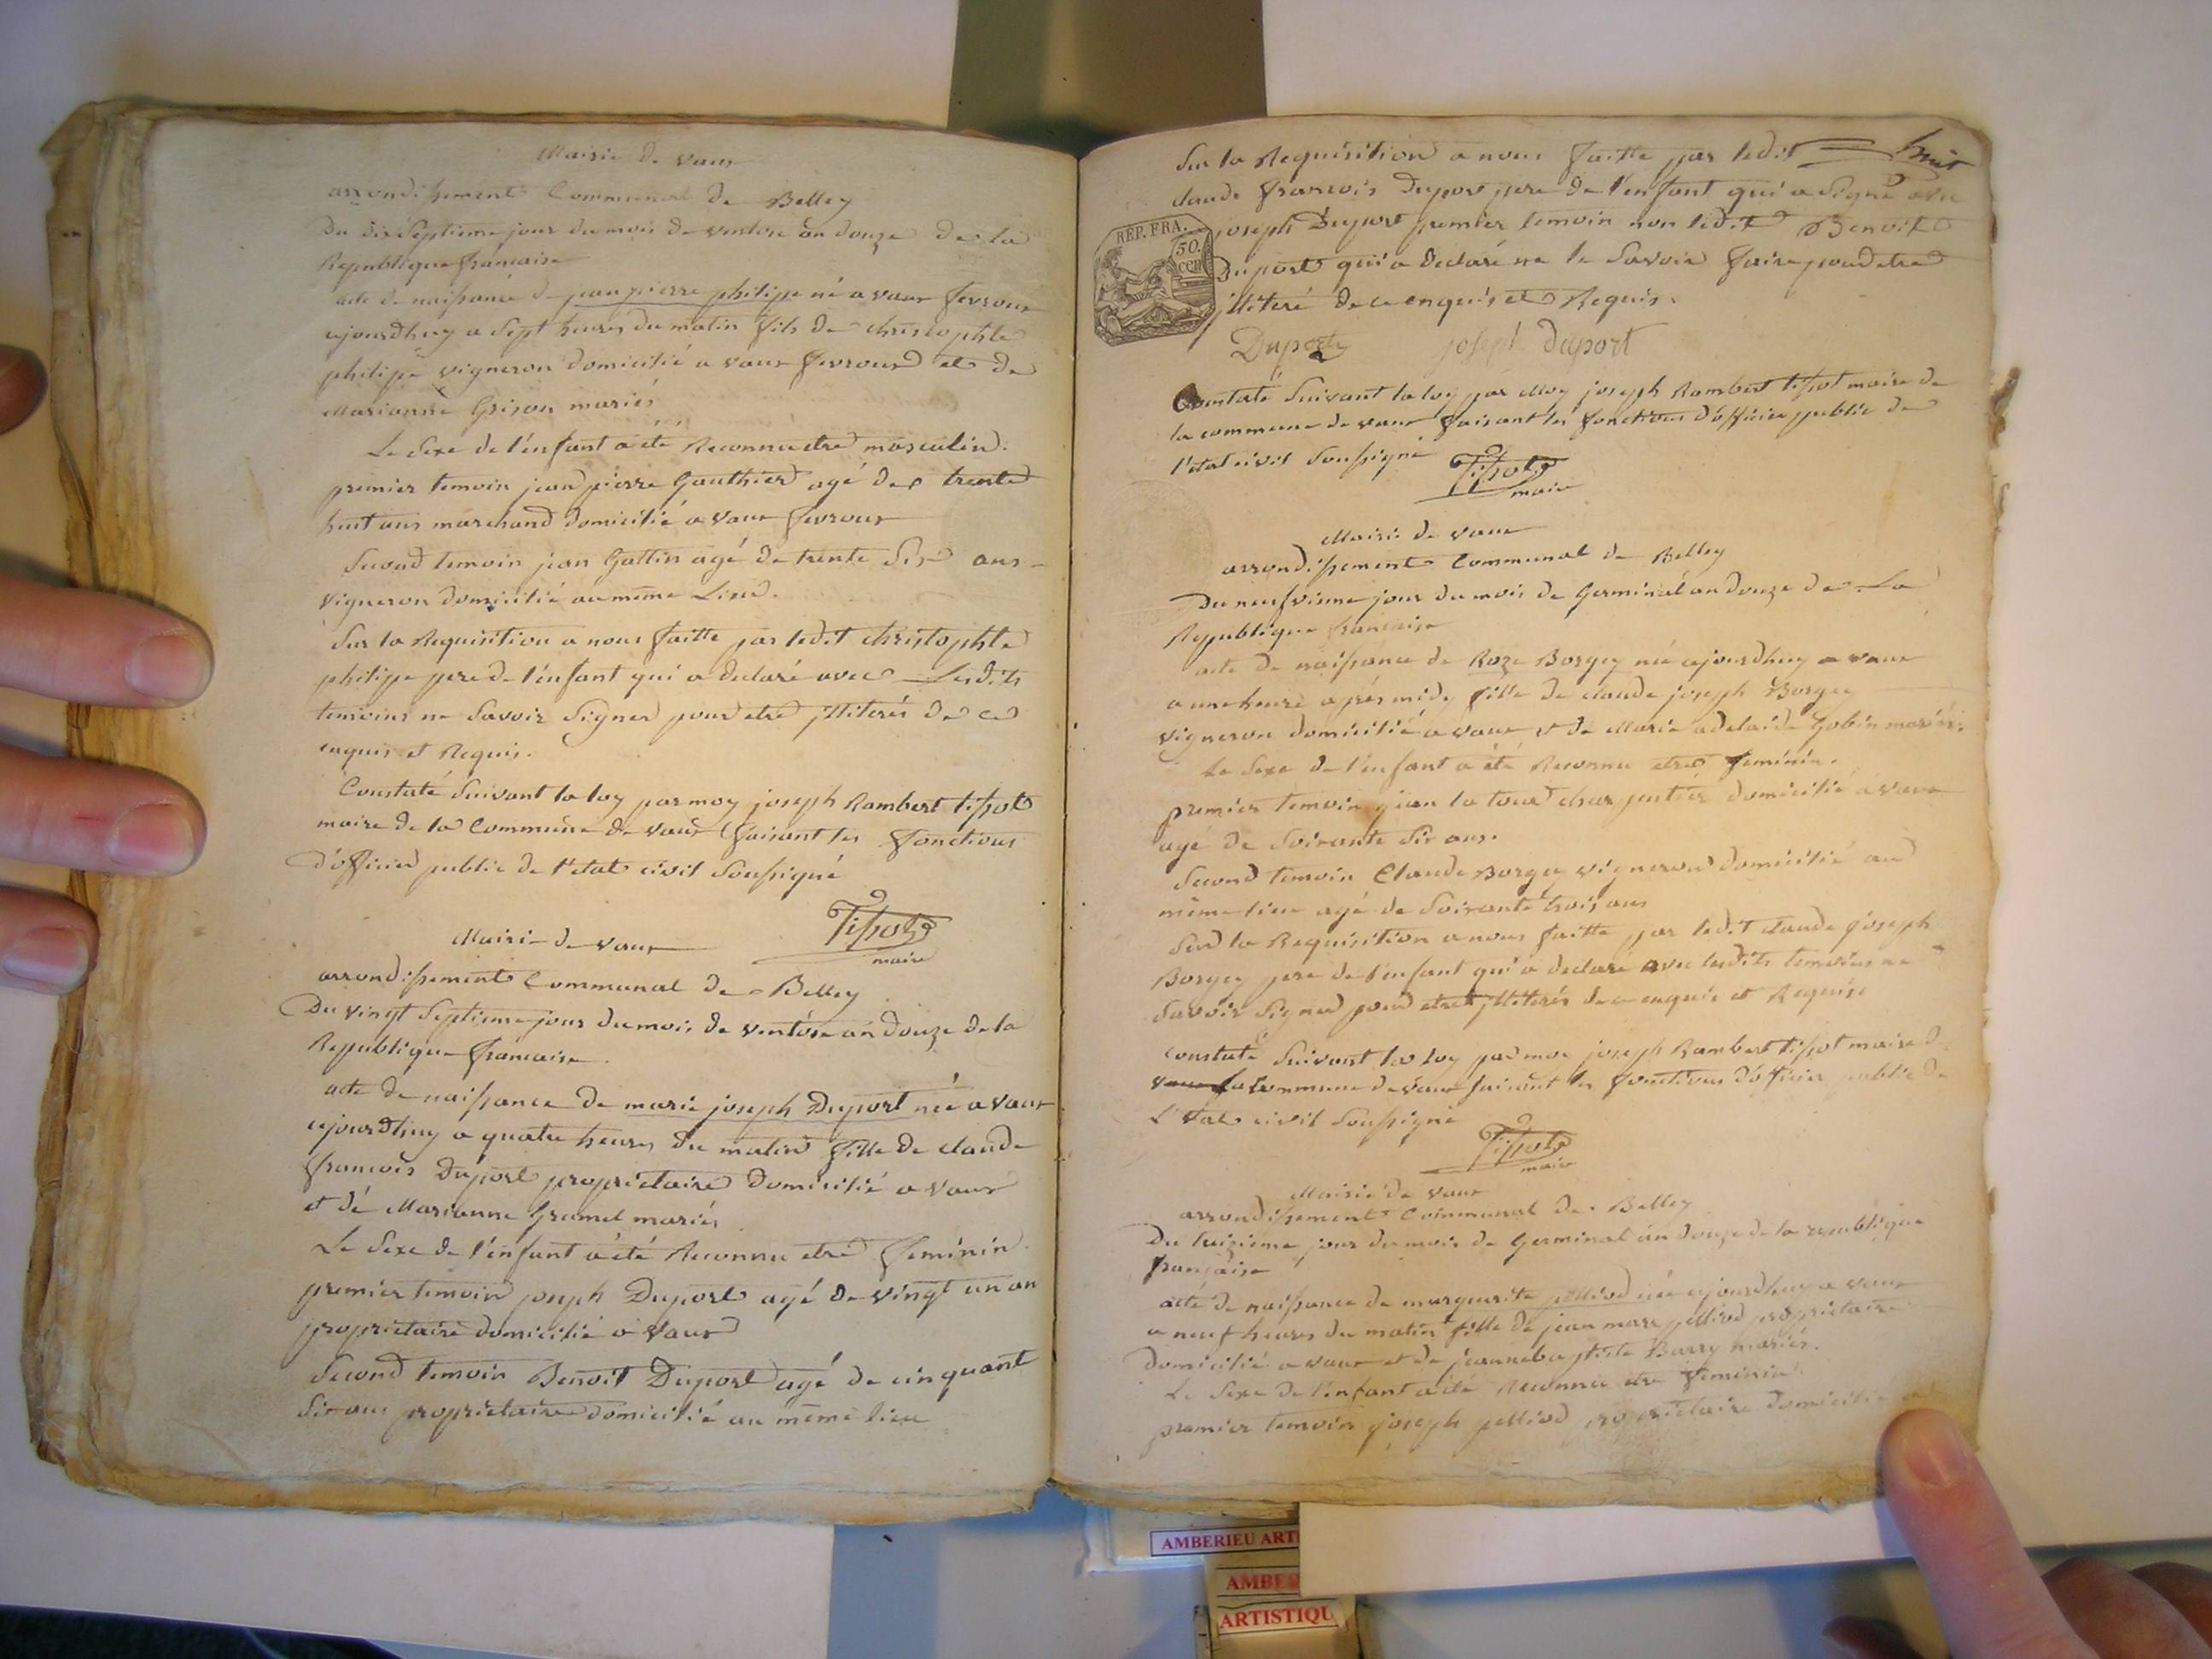 Mairie de vaux
arrondissement Communal de Belley
Du dix Septieme jour du mois de ventose an douze de la
Republique francaise
acte de naissance de jean pierre philippe né a vaux fevroux
ajourdhuy a Sept heures du matin fils de christophle
philipe vigneron domicilié a vaux fevroux et de
Marianne Grison mariés
Le Sexe de l'enfant a été Reconnu etre masculin.
premier temoin jean pierre Gauthier agé de trente
huit ans marchand domicilié a vaux fevroux
Second temoin jean Gallin agé de trente Six ans
vigneron domicilié au même Lieu.
Sur la Requisition a nous faitte par ledit christophle
philippe pere de l'enfant qui a declaré avec Lesdits
temoins ne Savoir Signer pour etre illiterés de ce
enquis et Requis.
Constaté Suivant la loy par moy joseph Rambert tissot
maire de la Commune de vaux faisant les fonctions
d'officier public de l'etat civil Soussigné
Tissot
maire
Mairie de vaux
arrondissement Communal de Belley
Du vingt Septieme jour du mois de ventose an douze de la
Republique francaise.
acte de naissance de marie joseph Duport née a vaux
ajourdhuy a quatre heures du matin fille de claude
francois Duport proprietaire domicilié a vaux
et de Marianne Gramel mariés
Le Sexe de l'enfant a été Reconnu etre feminin
premier temoin joseph Duport agé de vingt un an
proprietaire domicilié a vaux
Second temoin Benoit Duport agé de cinquant
Six ans proprietaire domicilié au même lieu
huit
Sur la Requisition a nous faitte par ledit
claude francois Duport pere de l'enfant qui a Signé avec
joseph Duport premier temoin non ledit Benoit
Duport qui a declaré ne le Savoir faire pour etre
illiteré de ce enquis et Requis.
REP. FRA.
50.
CEN
Duport joseph duport
Constaté Suivant la loy par Moy joseph Rambert tissot maire de
la commune de vaux faisant les fonctions d'officier public de
l'etat civil Soussigné
Tissot
maire
Mairie de vaux
arrondissement Communal de Belley
Du neufvieme jour du mois de Germinal an douze de La
Republique francaise
acte de naissance de Roze Borgey née ajourdhuy a vaux
a une heure après midy fille de claude joseph Borgey
vigneron domicilié a vaux et de Marie adelaide Gobin mariés.
Le Sexe de l'enfant a été Reconnu etre feminin.
premier temoin jean la tour charpentier domicilié a vaux
agé de Soixante Six ans.
Second temoin Claude Borgey vigneron domicilié au
même lieu agé de Soixante trois ans
Sur la Requisition a nous faitte par ledit claude joseph
Borgey pere de l'enfant qui a declaré avec lesdits temoins ne
Savoir Signer pour etre illiterés de ce enquis et Requise
Constaté Suivant la loy par moy joseph Rambert tissot maire d
vaux la commune de vaux faisant les fonctions d'officier public de
L'etat civil Soussigné
Tissot
maire
Mairie de vaux
arrondissement Communal de Belley
Du treizieme jour du mois de Germinal an douze de la republique
française
acte de naissance de marguerite pelliod née ajourdhuy a vaux
a neuf heures du matin fille de jean marc pelliod proprietaire
domicilié a vaux et de jeanne baptiste Barry mariés.
Le Sexe de l'enfant a été Reconnu etre feminin
premier temoin joseph pelliod proprietaire domicilié
AMBERIEU ART
AMBER
ARTISTIQU